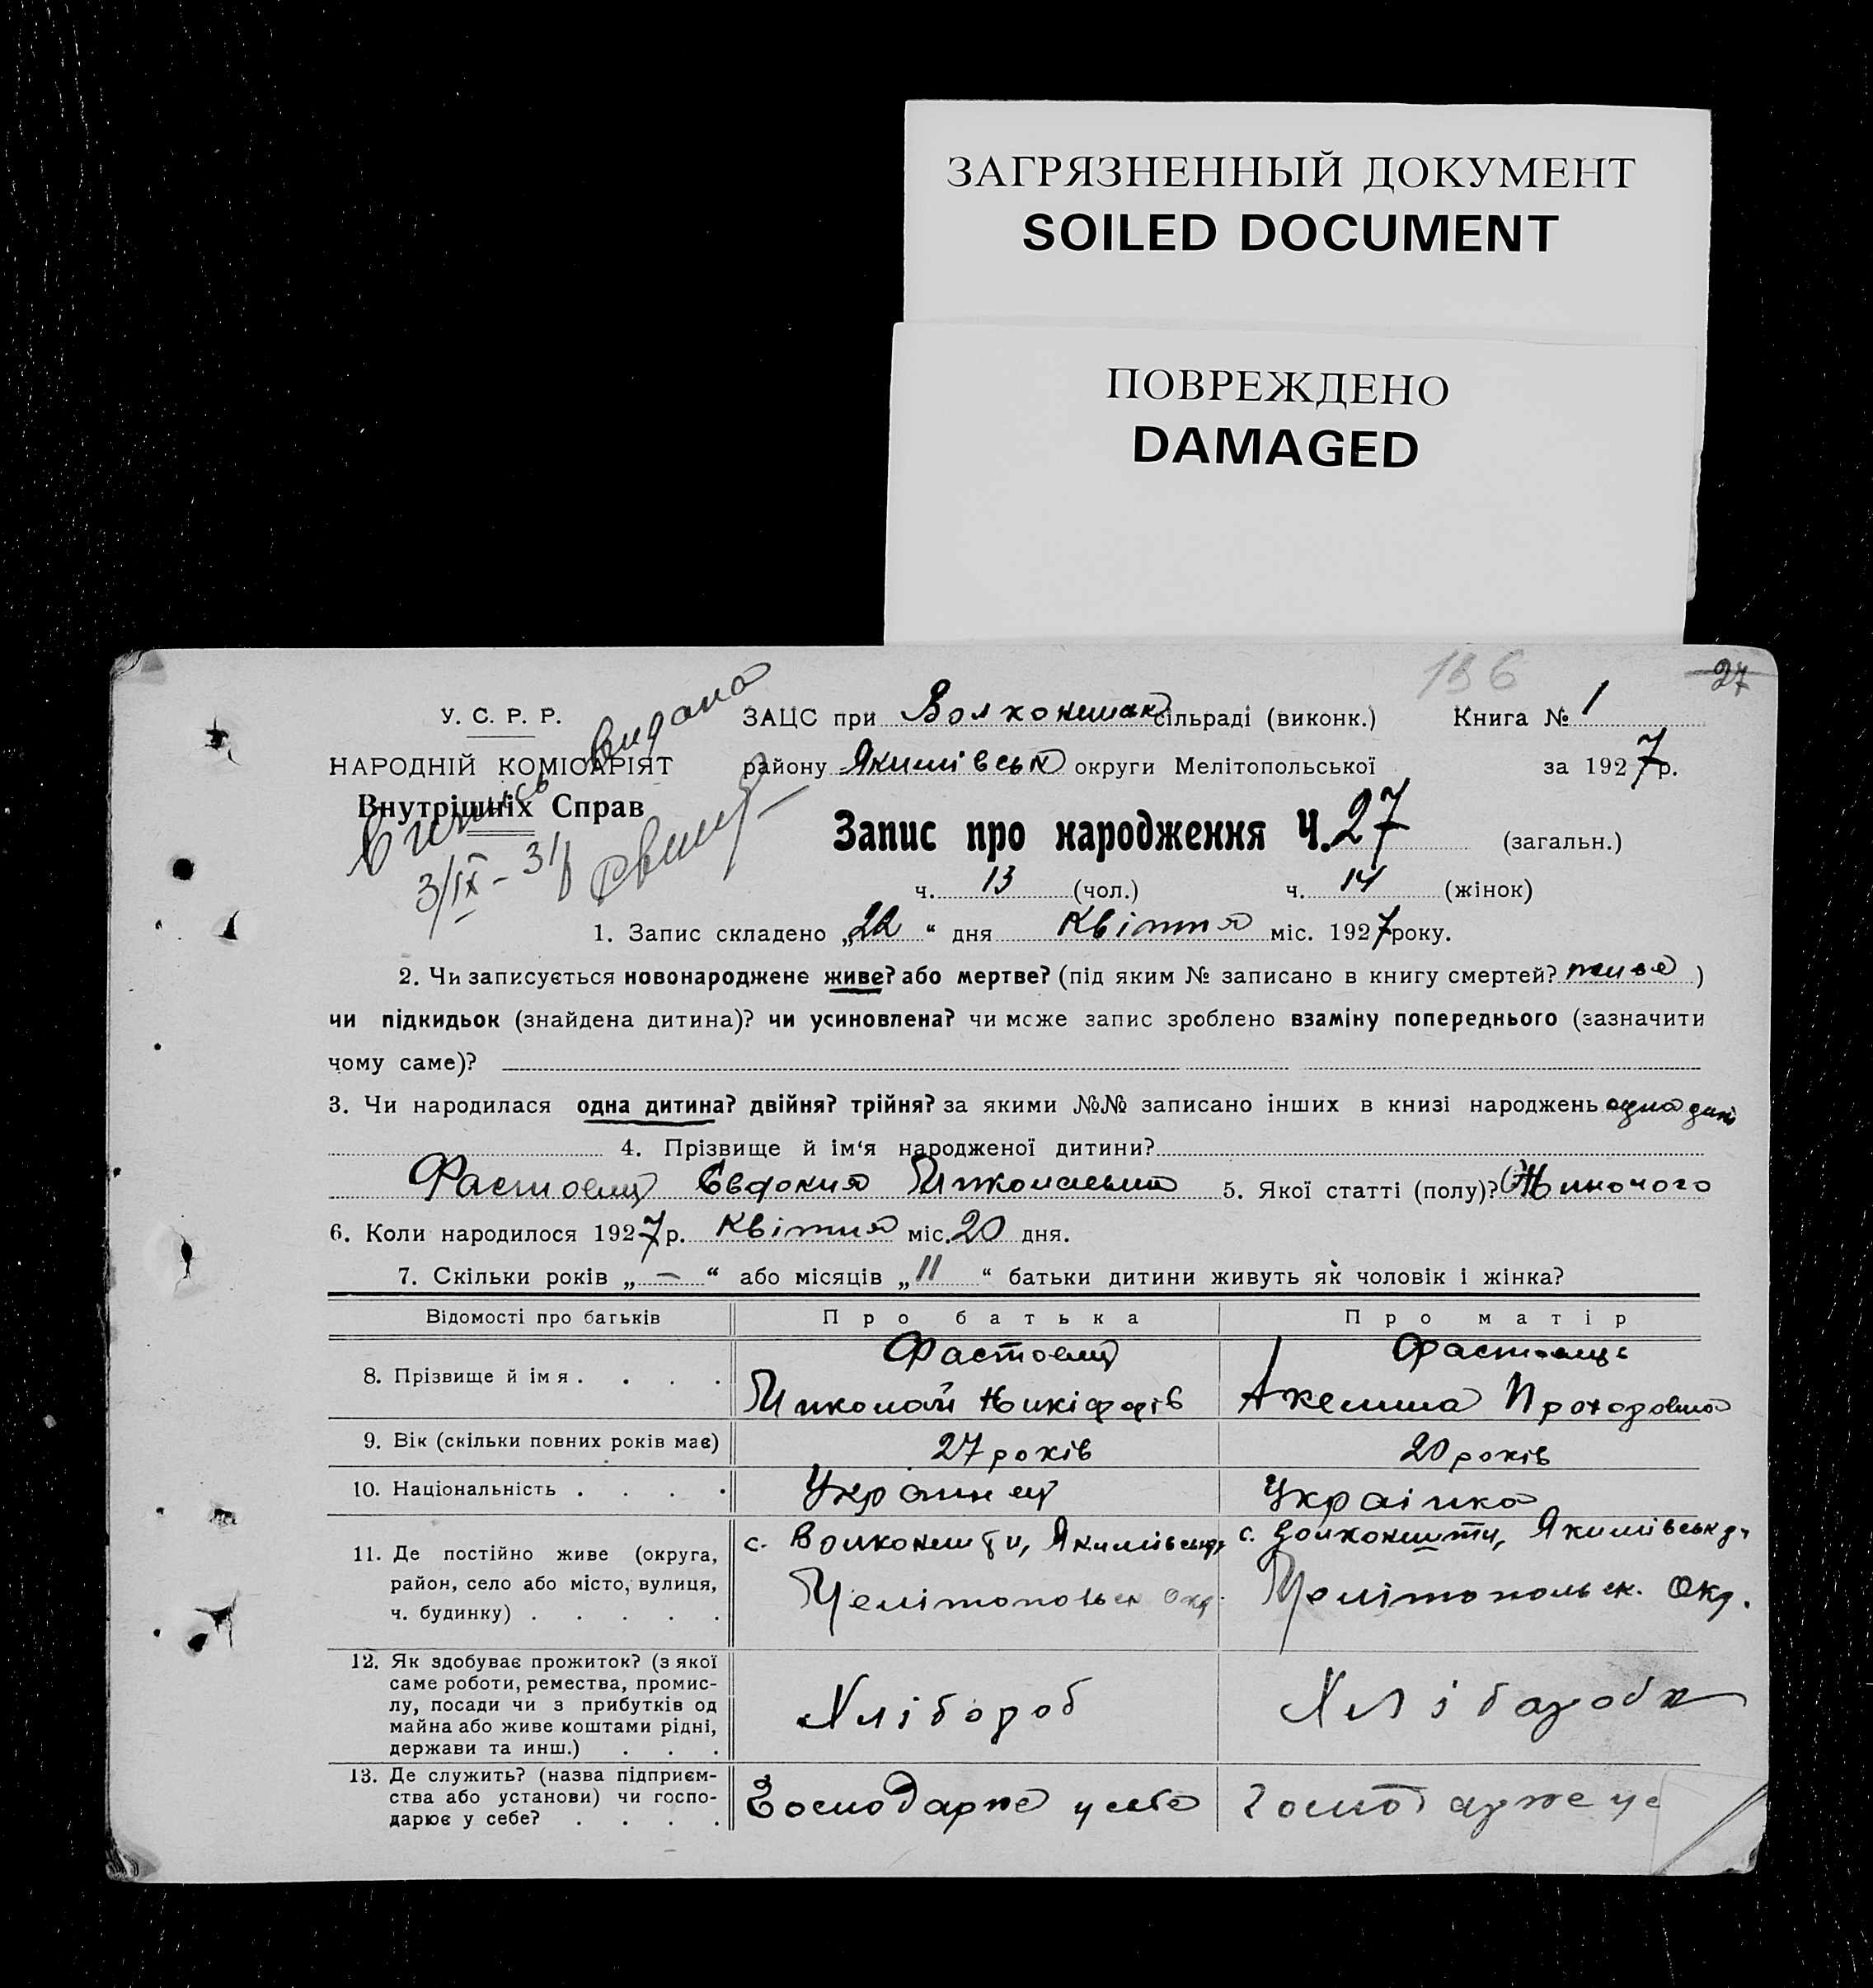 ЗАГРЯЗНЕННЫЙ ДОКУМЕНТ
SOILED DOCUMENT
ПОВРЕЖДЕНО
DAMAGED
136 27
У. С. Р. Р.
НАРОДНІЙ КОМІСАРІЯТ
Внутрішніх Справ
Випись видана
3/IX-31р
ЗАЦС при Волконешан сільраді (виконк.) Книга № 1
району Якимівськ округи Мелітопольської за 1927р.
Запис про народження Ч. 27 (загальн.)
ч. 13 (чол.) ч. 14 (жінок)
1. Запис складено „22“ дня Квітня міс. 1927 року.
2. Чи записується новонароджене живе? або мертве? (під яким № записано в книгу смертей? живе )
чи підкидьок (знайдена дитина)? чи усиновлена? чи може запис зроблено взаміну попереднього (зазначити
чому саме)?
3. Чи народилася одна дитина? двійня? трійня? за якими №№ записано інших в книзі народжень одна дит
4. Прізвище й ім‘я народженої дитини?
Фастовец Євдокия Миколаевна 5. Якої статті (полу)? Жиночого
6. Коли народилося 1927р. Квітня міс. 20 дня.
7. Скільки років „ — “ або місяців „ 11 “ батьки дитини живуть як чоловік і жінка?
Відомості про батьків Про батька Про матір
8. Прізвище й імя . . . .
Фастовец
Миколай Никіфорів
Фастовець
Акелина Прохоровна
9. Вік (скільки повних років має) 27 років 20 років
10. Національність . . . . Украинец Украінка
11. Де постійно живе (округа,
район, село або місто, вулиця,
ч. будинку) . . . . .
с. Волконешти, Якимівськ
Мелітопольск Окр.
с. Волконешти, Якимівськ р.
Мелітопольск. Окр.
12. Як здобуває прожиток? (з якої
саме роботи, ремества, промис-
лу, посади чи з прибутків од
майна або живе коштами рідні,
держави та инш.) . . .
Хлібороб
Хліборобк
13. Де служить? (назва підприєм-
ства або установи) чи госпо-
дарює у себе? . . . .
Господарже у себе
Господарже у се